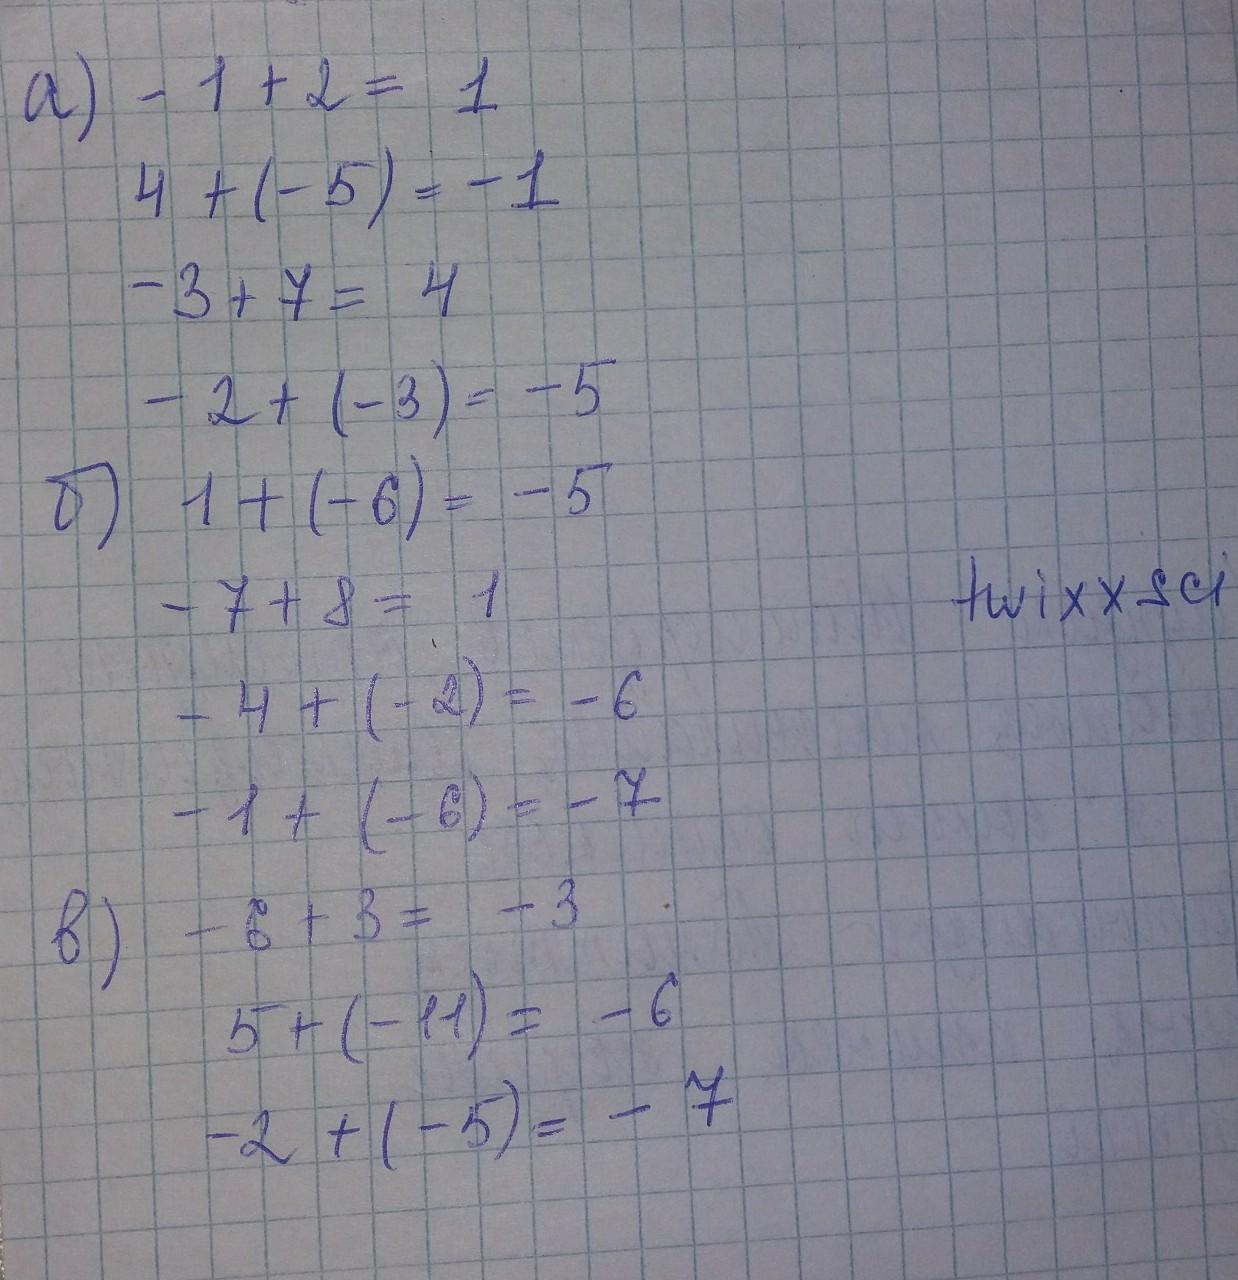 а) - 1 + 2 = 1
4 + (- 5) = - 1
- 3 + 7 = 4
- 2 + (- 3) = - 5
б) 1 + (- 6) = - 5
- 7 + 8 = 1
twixxsci
- 4 + (- 2) = - 6
- 1 + (- 6) = - 7
в) - 6 + 3 = - 3
5 + (- 11) = - 6
- 2 + (- 5) = - 7